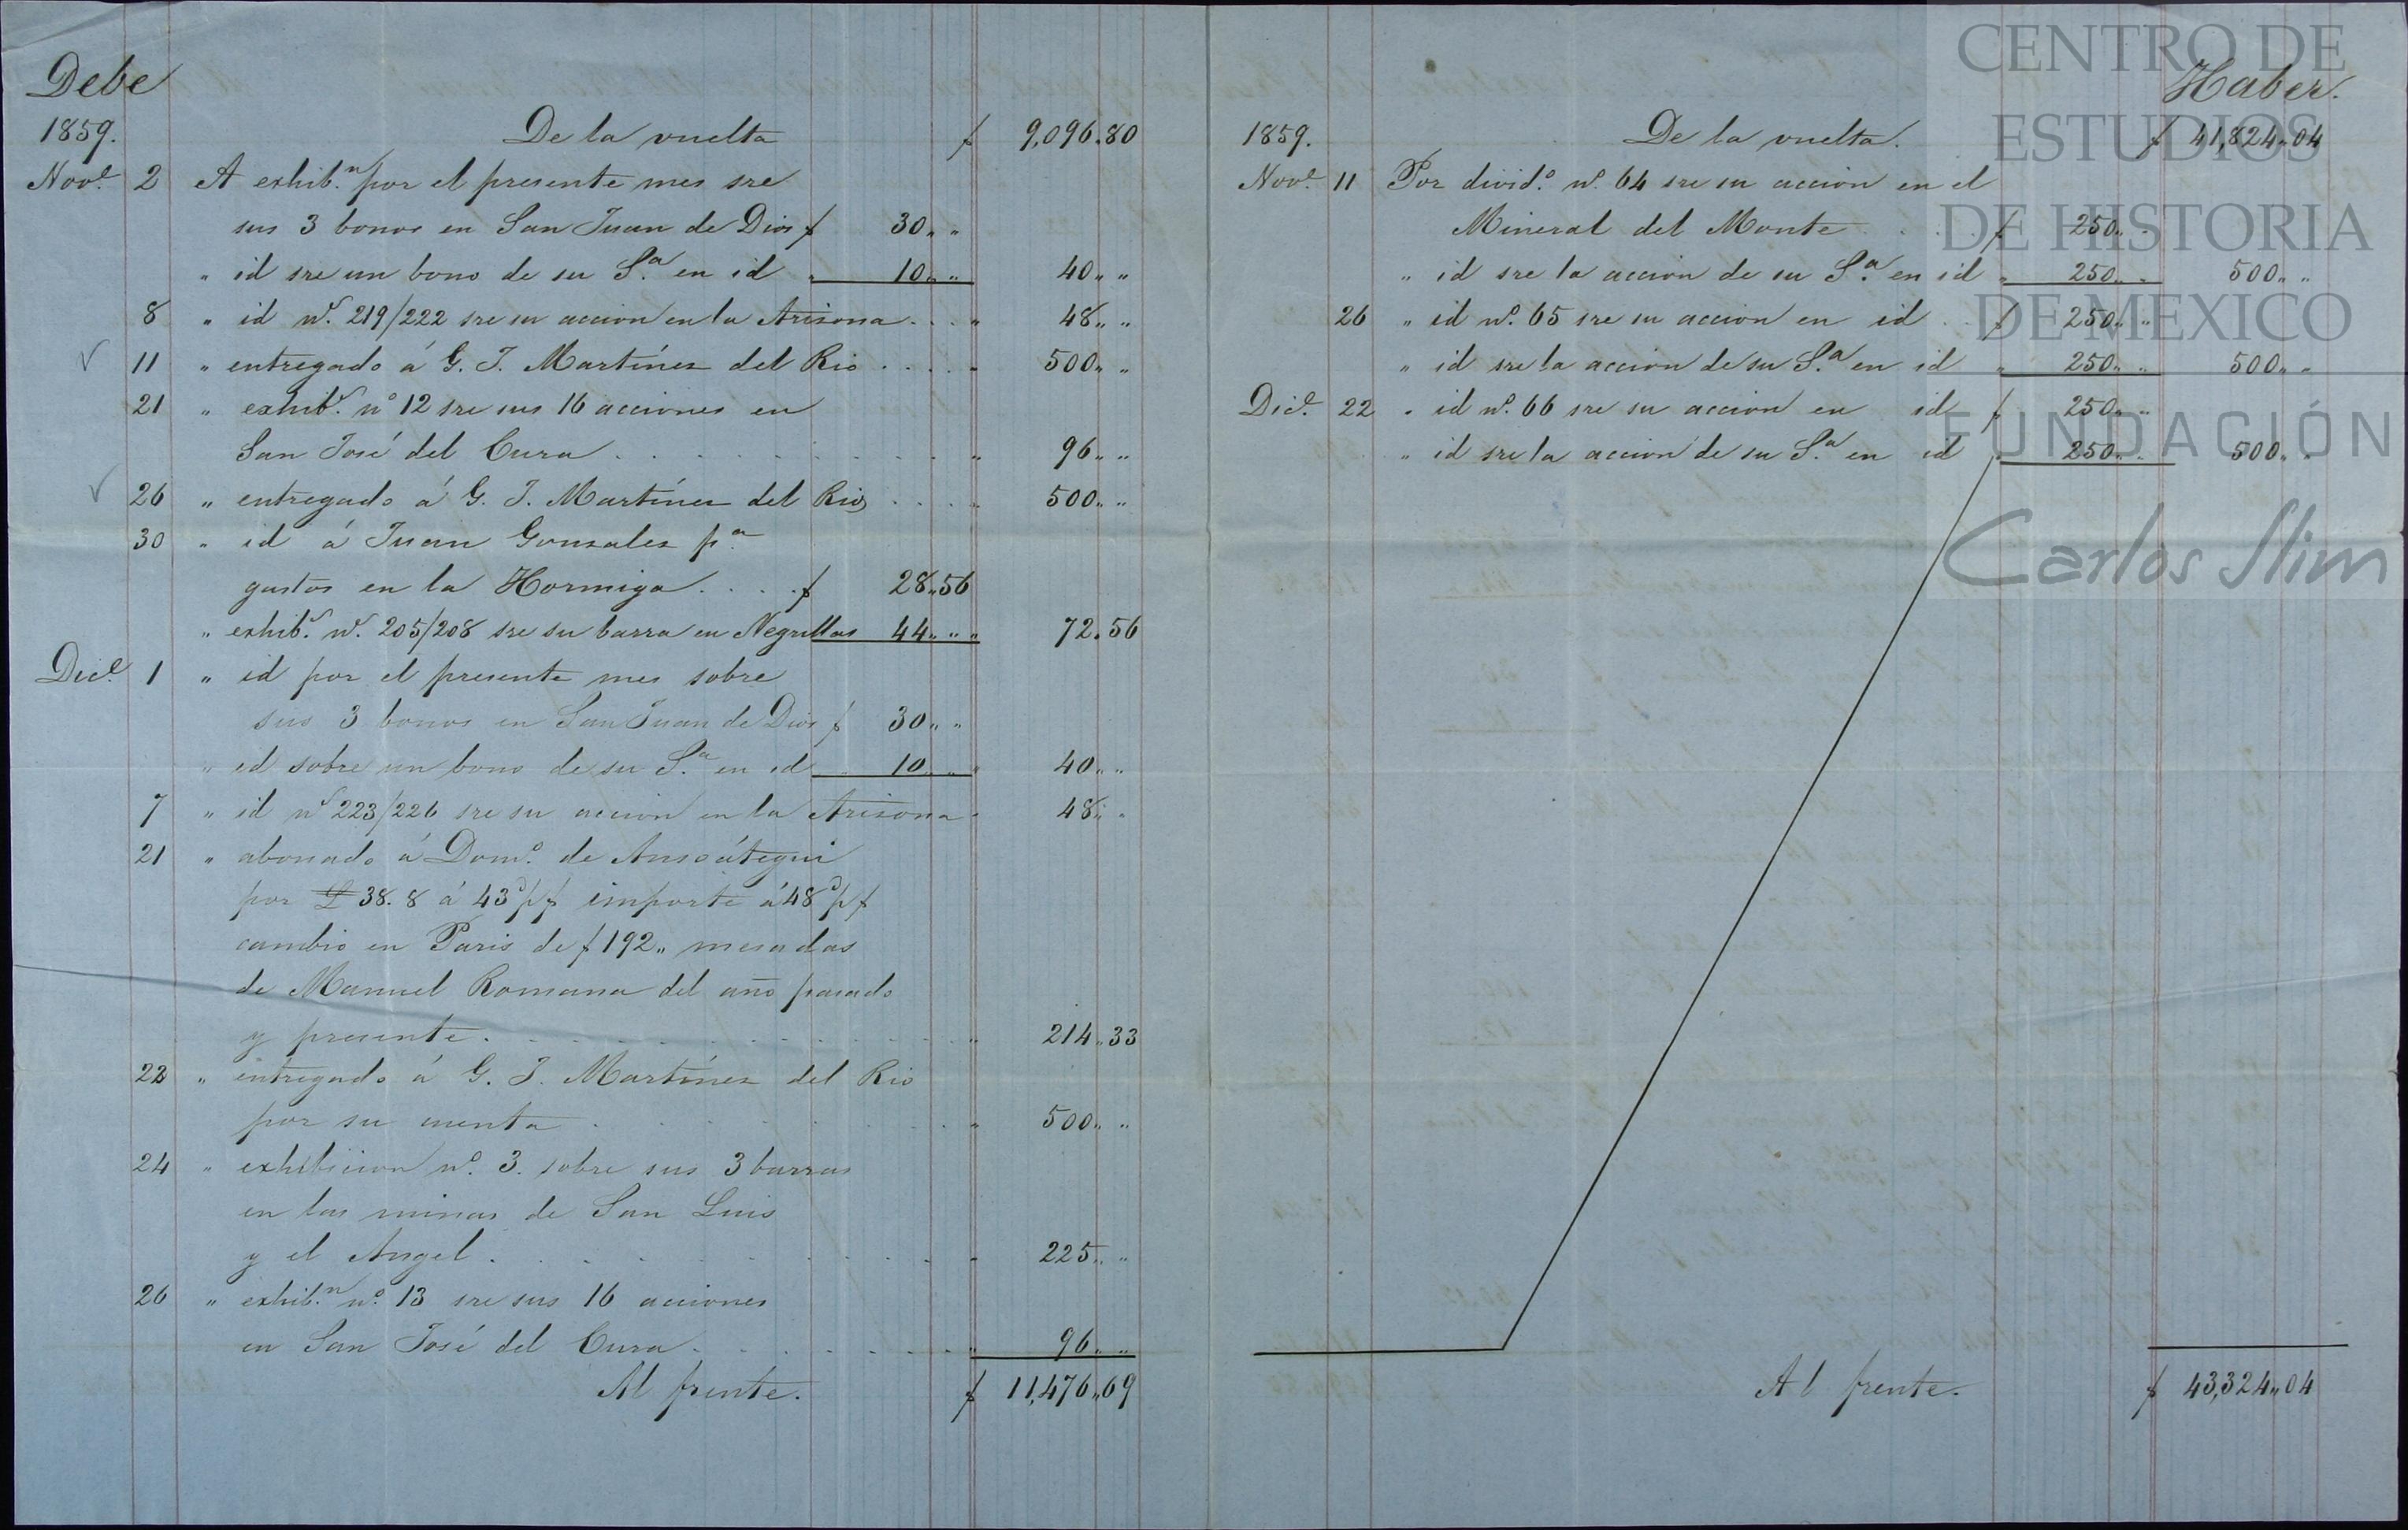 Debe
1859. De la vuelta $ 9,096.80
Nov.e 2 A exhib.n por el presente mes sre
sus 3 bonos en San Juan de Dios $ 30,, ,,
,, id sre un bono de su S.a en id ,, 10,, ,, 40,, ,,
8 ,, id n.o 219/222 sre su accion en la Arizona . . . ,, 48,, ,,
11 ,, entregado á G. J. Martínez del Rio . . . . ,, 500,, ,,
21 ,, exhib.n n.o 12 sre sus 16 acciones en
San José del Cura . . . . . . . . . . ,, 96,, ,,
26 ,, entregado á G. J. Martínez del Rio . . . . 500,, ,,
30 ,, id á Juan Gonzales p.a
gastos en la Hormiga . . . . $ 28,,56
,, exhib.n n.o 205/208 sre su barra en Negrillas 44,, ,, ,, 72.56
Dic.e 1 ,, id por el presente mes sobre
sus 3 bonos en San Juan de Dios $ 30,, ,,
,, id sobre un bono de su S.a en id ,, 10,, ,, ,, 40,, ,,
7 ,, id n.o 223/226 sre su accion en la Arizona ,, 48,, ,,
21 ,, abonado á Dom.o de Ansoátegui
por £ 38. 8 á 43 d p $ importe á 48 d p $
cambio en Paris de $ 192,, mesadas
de Manuel Romana del año pasado
y presente . . . . . . . . . . . . ,, 214,,33
22 ,, entregado á G. J. Martínez del Rio
por su cuenta . . . . . . . . . ,, 500,, ,,
24 ,, exhibicion n.o 3. sobre sus 3 barras
en las minas de San Luis
y el Angel . . . . . . . . . . . ,, 225,, ,,
26 ,, exhib.n n.o 13 sre sus 16 acciones
en San José del Cura . . . . . . . ,, 96,, ,,
Al frente. $ 11,476,,69
Haber.
1859. De la vuelta. $ 41,824,,04
Nov.e 11 Por divid.o n.o 64 sre su accion en el
Mineral del Monte . . . . $ 250,, ,,
,, id sre la accion de su S.a en id ,, 250,, ,, 500,, ,,
26 ,, id n.o 65 sre su accion en id . . $ 250,, ,,
,, id sre la accion de su S.a en id ,, 250,, ,, 500,, ,,
Dic.e 22 ,, id n.o 66 sre su accion en id $ 250,, ,,
,, id sre la accion de su S.a en id ,, 250,, ,, 500,, ,,
Al frente. $ 43,324,,04
CENTRO DE
ESTUDIOS
DE HISTORIA
DE MEXICO
FUNDACIÓN
Carlos Slim